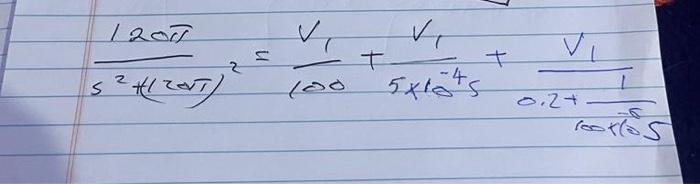 120π / (s² + (120π)²) = V₁ / 100 + V₁ / (5×10⁻⁴s) + V₁ / (0.2 + 1 / (100×10⁻⁶s))